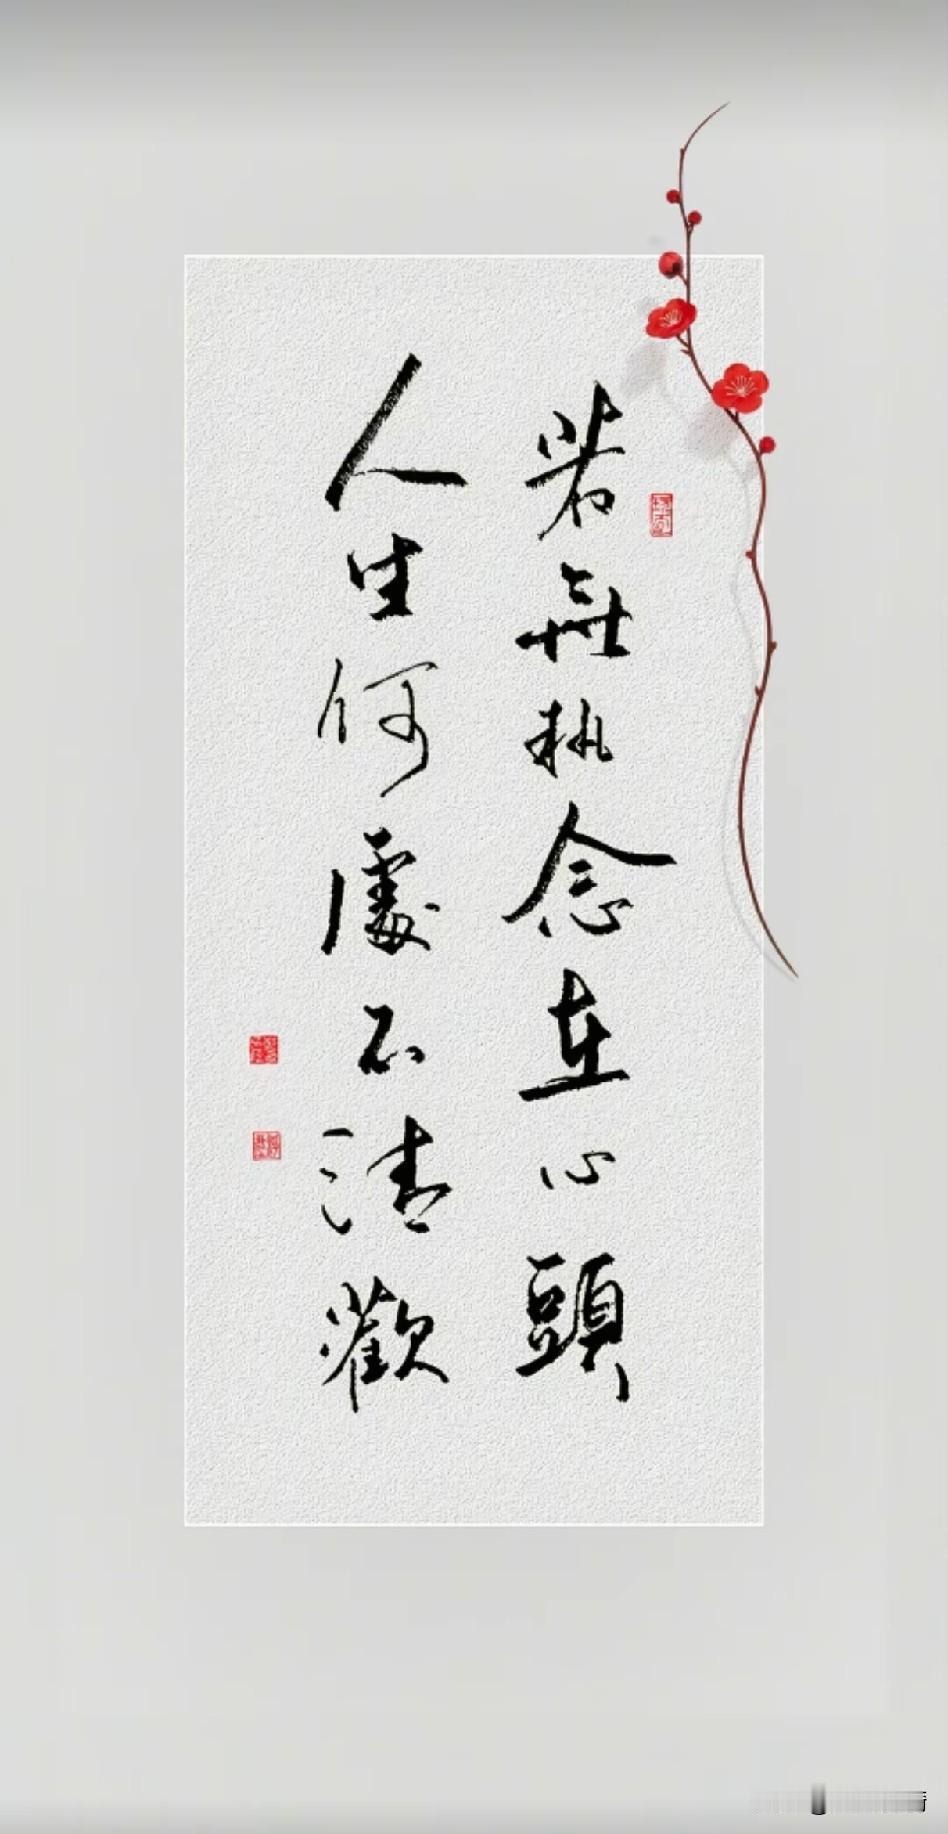 若無执念在心頭
人生何處不清歡